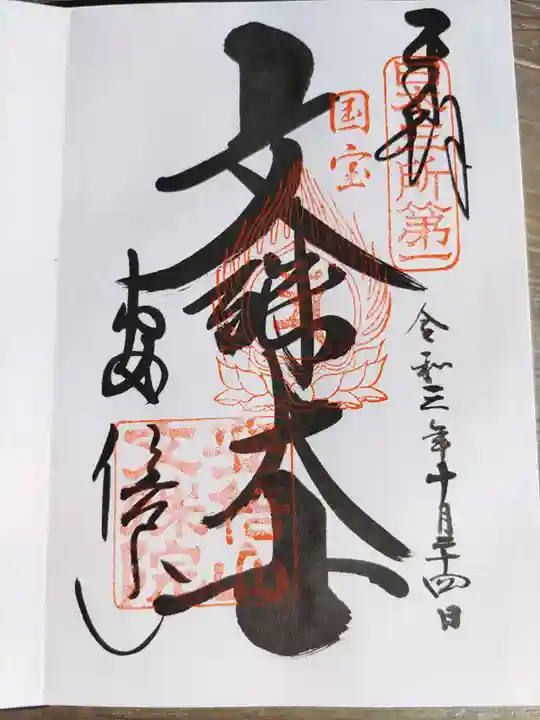 奉拝
日本三所第一
令和三年十月二十四日
国宝
文殊大士
安倍山
文殊院
安倍